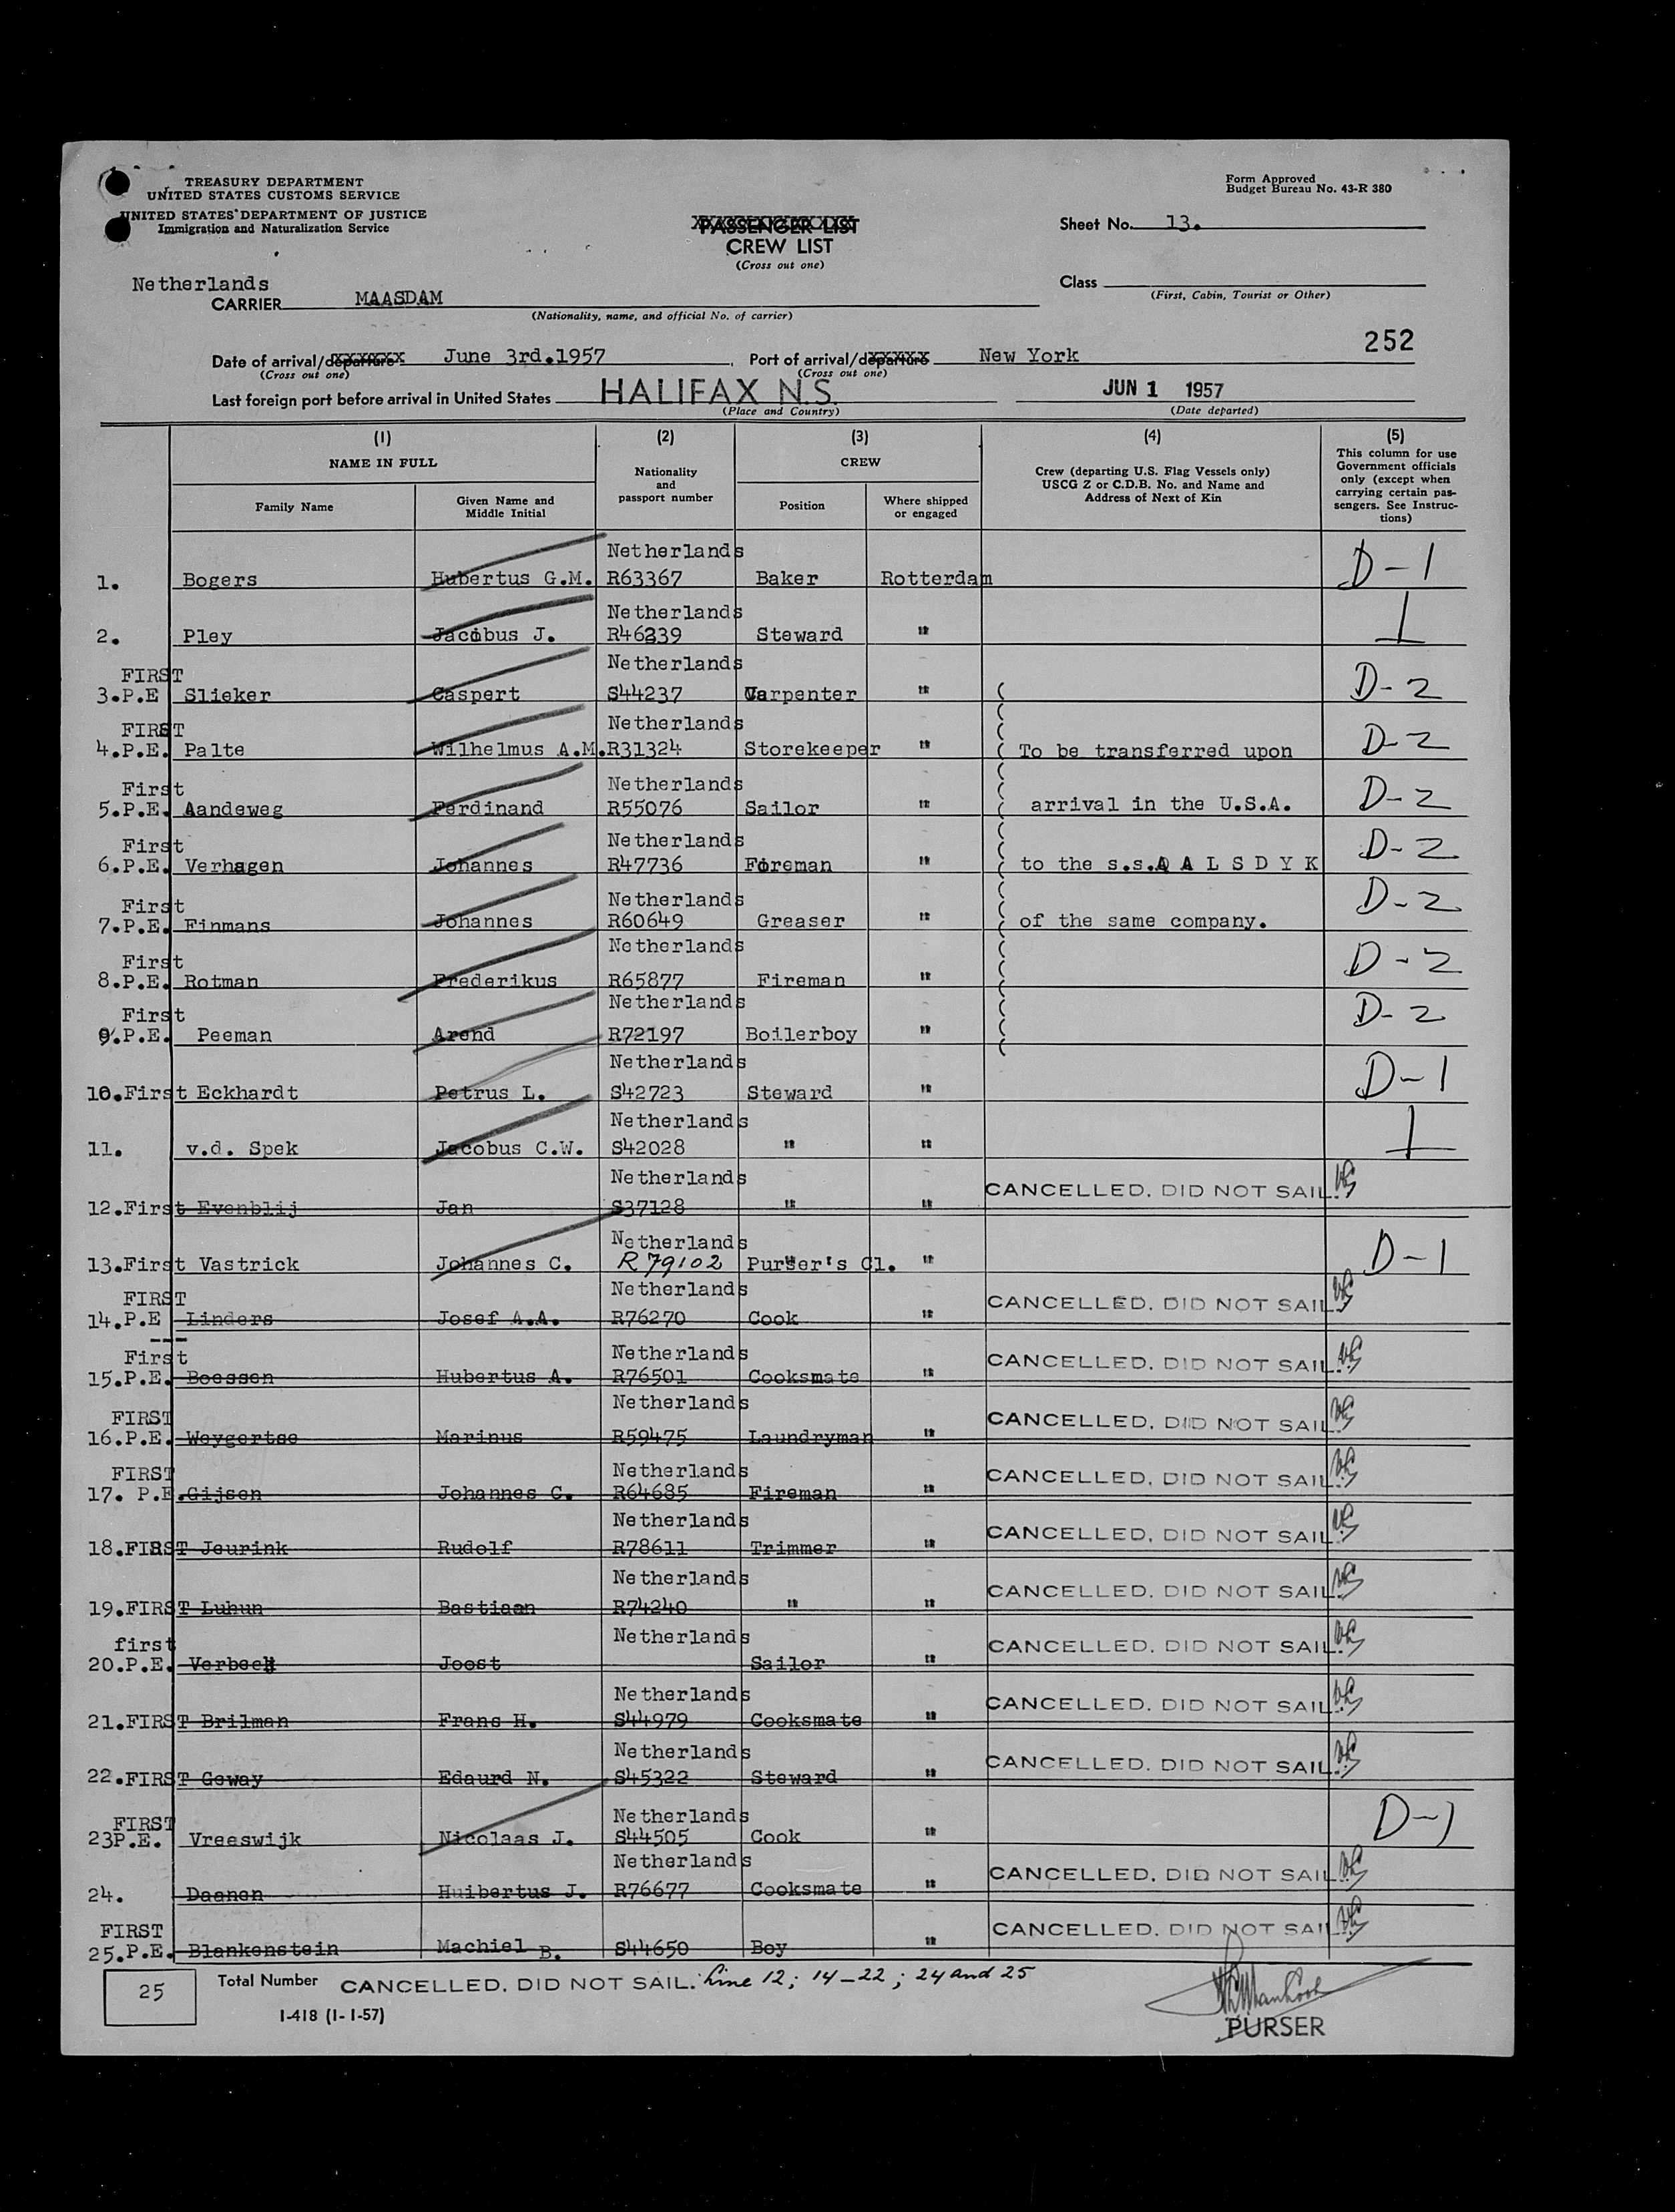 TREASURY DEPARTMENT
UNITED STATES CUSTOMS SERVICE
UNITED STATES DEPARTMENT OF JUSTICE
Immigration and Naturalization Service
Form Approved
Budget Bureau No. 43-R 380
PASSENGER LIST
CREW LIST
(Cross out one)
Sheet No. 13.
Netherlands
CARRIER MAASDAM
(Nationality, name, and official No. of carrier)
Class
(First, Cabin, Tourist or Other)
252
Date of arrival/departure June 3rd.1957, Port of arrival/departure New York
(Cross out one) (Cross out one)
Last foreign port before arrival in United States HALIFAX N.S. JUN 1 1957
(Place and Country) (Date departed)
(1) (2) (3) (4) (5)
NAME IN FULL
Family Name
Given Name and Middle Initial
Nationality and passport number
CREW
Position
Where shipped or engaged
Crew (departing U.S. Flag Vessels only)
USCG Z or C.D.B. No. and Name and
Address of Next of Kin
This column for use
Government officials
only (except when
carrying certain pas-
sengers. See Instruc-
tions)
Netherlands
1. Bogers Hubertus G.M. R63367 Baker Rotterdam D-1
Netherlands
2. Pley Jacobus J. R46239 Steward " 1
FIRST Netherlands
3.P.E Slieker Caspert S44237 Carpenter " D-2
FIRST Netherlands
4.P.E. Palte Wilhelmus A.M. R31324 Storekeeper " ( To be transferred upon D-2
First Netherlands
5.P.E. Aandeweg Ferdinand R55076 Sailor " ( arrival in the U.S.A. D-2
First Netherlands
6.P.E. Verhagen Johannes R47736 Foreman " ( to the s.s.A A L S D Y K D-2
First Netherlands
7.P.E. Finmans Johannes R60649 Greaser " ( of the same company. D-2
First Netherlands
8.P.E. Rotman Frederikus R65877 Fireman " D-2
First Netherlands
9.P.E. Peeman Arend R72197 Boilerboy " D-2
Netherlands
10.First Eckhardt Petrus L. S42723 Steward " D-1
Netherlands
11. v.d. Spek Jacobus C.W. S42028 " " 1
Netherlands
12.First Evenblij Jan S37128 " " CANCELLED. DID NOT SAIL.
Netherlands
13.First Vastrick Johannes C. R 79102 Purser's Cl. " D-1
FIRST Netherlands
14.P.E Linders Josef A.A. R76270 Cook " CANCELLED. DID NOT SAIL.
First Netherlands
15.P.E. Boessen Hubertus A. R76501 Cooksmate " CANCELLED. DID NOT SAIL.
FIRST Netherlands
16.P.E. Weygertse Marinus R59475 Laundryman " CANCELLED. DID NOT SAIL.
FIRST Netherlands
17. P.E. Gijsen Johannes C. R64685 Fireman " CANCELLED. DID NOT SAIL.
Netherlands
18.FIRST Jeurink Rudolf R78611 Trimmer " CANCELLED. DID NOT SAIL.
Netherlands
19.FIRST Luhun Bastiaan R74240 " " CANCELLED. DID NOT SAIL.
first Netherlands
20.P.E. Verbeek Joost Sailor " CANCELLED. DID NOT SAIL.
Netherlands
21.FIRST Brilman Frans H. S44979 Cooksmate " CANCELLED. DID NOT SAIL.
Netherlands
22.FIRST Geway Edaurd N. S45322 Steward " CANCELLED. DID NOT SAIL.
FIRST Netherlands
23P.E. Vreeswijk Nicolaas J. S44505 Cook " D-1
Netherlands
24. Daanen Huibertus J. R76677 Cooksmate " CANCELLED. DID NOT SAIL.
FIRST
25.P.E. Blankenstein Machiel B. S44650 Boy " CANCELLED. DID NOT SAIL.
25 Total Number CANCELLED. DID NOT SAIL. Line 12; 14-22; 24 and 25
I-418 (1-1-57)
PURSER